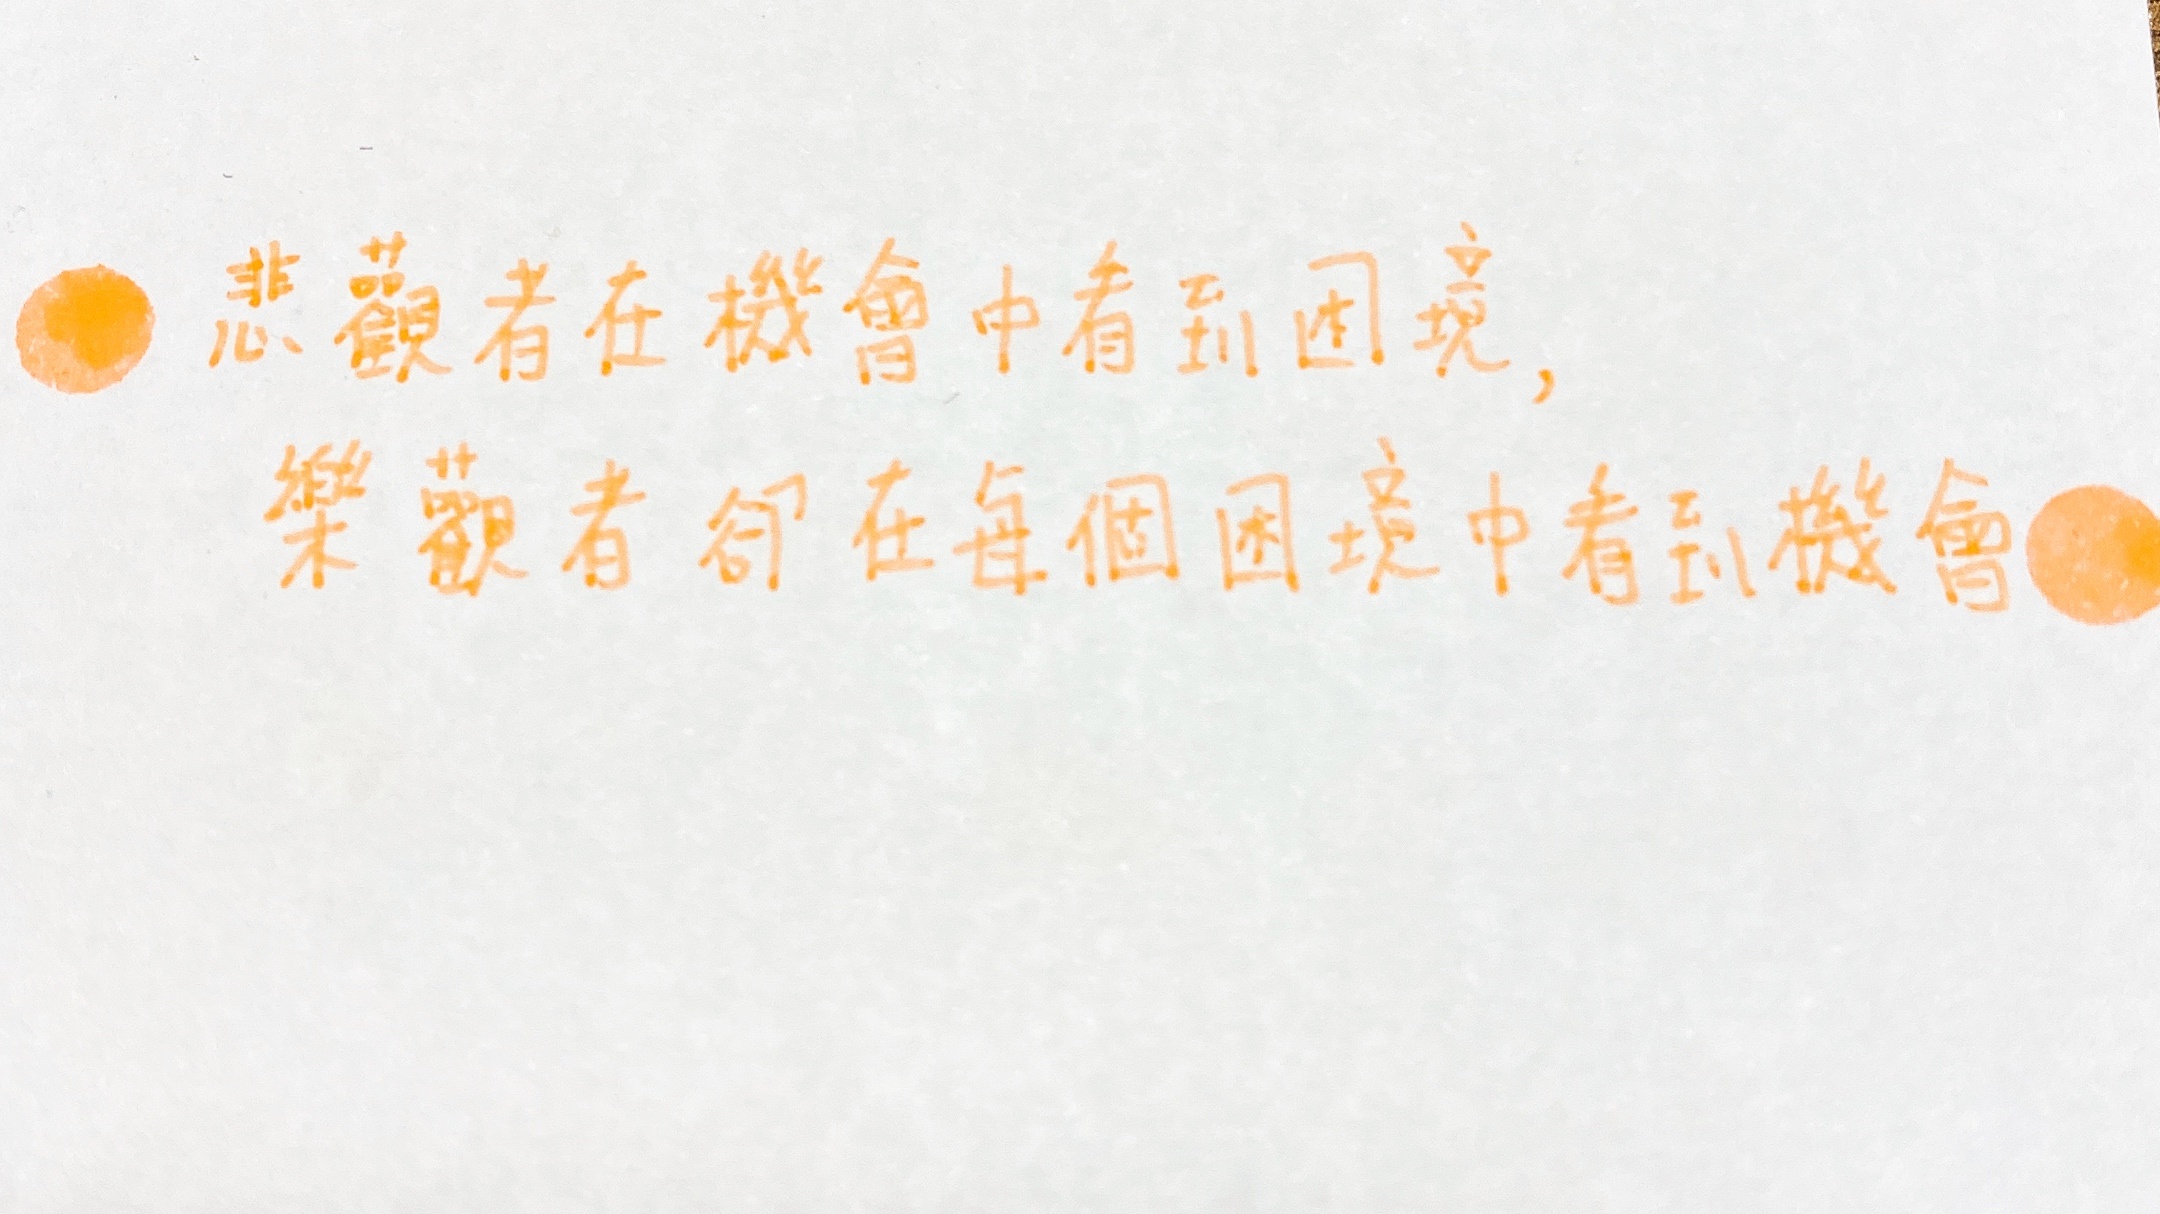 悲觀者在機會中看到困境,
樂觀者卻在每個困境中看到機會